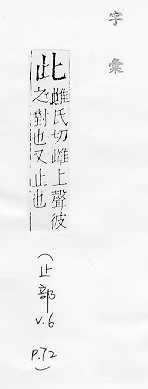 字彙
此
雌氏切雌上聲彼
之對也又止也
(止部
v.6
P.72)